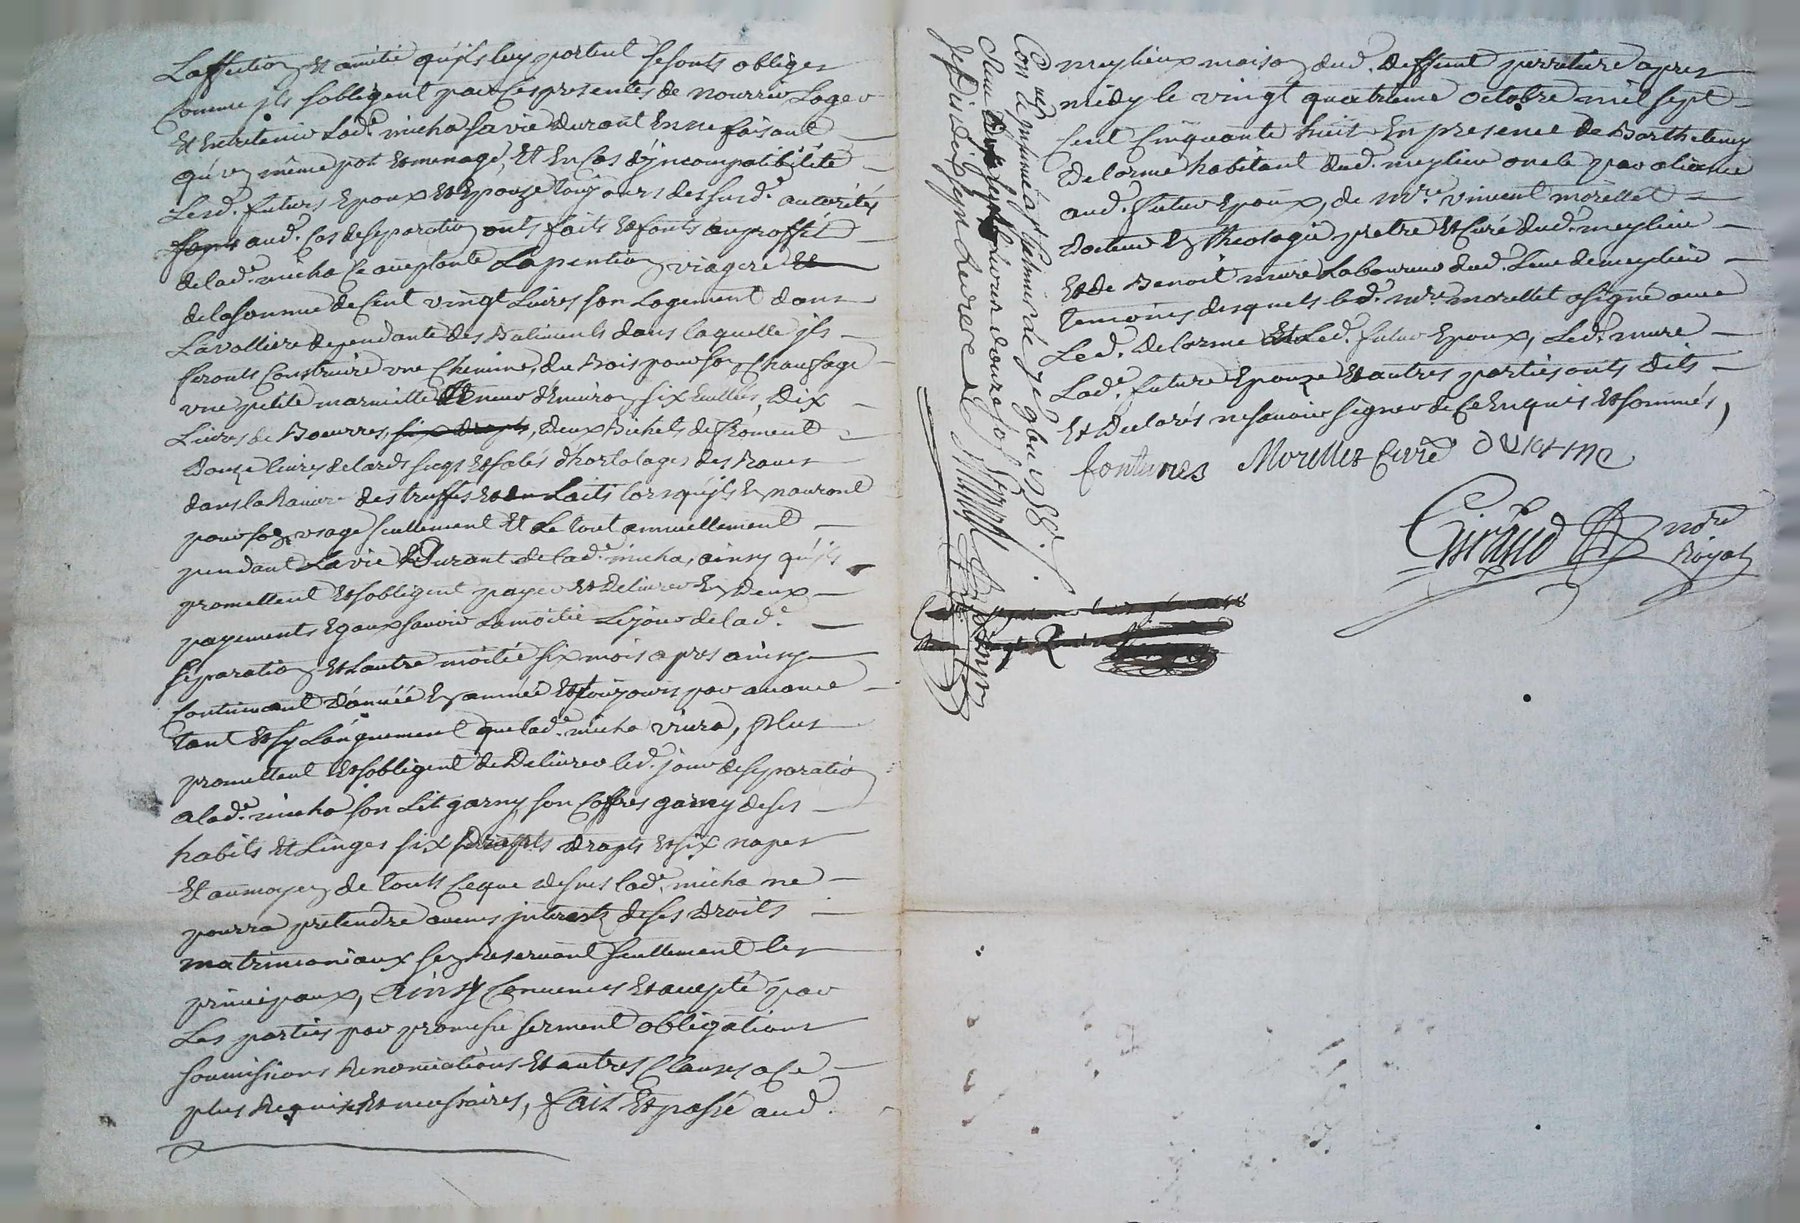 Laffection et amitié qu'ils luy portent se sonts obligés
Comme ils sobligent par ces presentes de nourrir Loger
Et Entretenir Lad.e micha sa vie durant En ne faisant
qu'un même pot et menage, Et En cas d'incompatibilité
Lesd. futurs Epoux et Epouze toujours des susd. autorités
aud. Cas de separation onts faits et fonts au proffit
de lad.e micha Ce aceptante La pention viagere
de la somme de Cent vingt Livres son Logement dans
Lavolliere dependante des Batiments dans laquelle ils
feronts Construire une Cheminé, du Bois pour son Chaufage
une petite marmitte neuve d'environ six Ecuelles, Dix
Livres de Boeurres, six draps, deux Bichets de froment
Douze livres de lards sucgs et salés d'hortolages des Raves
dans la Raviere des truffes et du Laits lors qu'ils En auront
pour son usage seullement Et Le tout annuellement
pendant La vie Durant de lad.e micha, ainsy qu'ils
promettent et sobligent payer et Delivrer En Deux
payements Egaux savoir La moitié Le jour de lad.e
separation et Lautre moitiée six mois apres ainsy
Continuant d'année En année et toujours par avance
tant et sy Longuement que lad.e micha vivra, Plus
promettent et sobligent de Delivrer led. jour de separation
a lad.e micha son Lit garny, son Coffres garny de ses
habits et Linges six draps et six napes
Et au moyen de touts Ceque dessus lad.e micha ne
pourra pretendre aucuns interests de ses Droits
matrimoniaux sen Reservant seullement les
principaux, Ainsy Convenus et acepté par
Les parties par promesse serment obligations
soumissions Renonciations et autres Clauses a ce
plus Requises et necessaires, fait et passé aud.
meylieux maison dud. Deffunt perretiere apres
midy le vingt quatrieme octobre mil sept
Cent Cinquante huit En presence de Barthelemy
Delorme habitant dud. meylieu oncle par aliance
aud. futur Epoux, de M.re vincent morellet
Docteur En Theologie pretre et Curé dud. meylieu
Et de Benoit mure Laboureur dud. Lieu de meylieu
temoins desquels led. m.re morellet a signé avec
Led. Delorme et Led. futur Epoux, Led. mure
Lad.e future Epouze et autres parties onts dits
Et Declarés ne savoir signer de Ce Enquis et sommés,
fontunes Morellet Curé
Giraud no.re
Royal